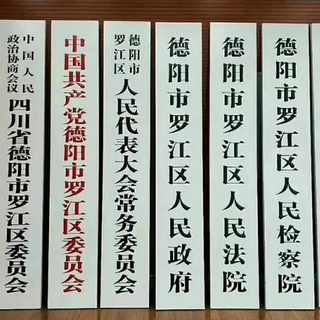 中国人民
政治协商会议
四川省德阳市罗江区委员会
中国共产党德阳市罗江区委员会
德阳市
罗江区
人民代表大会常务委员会
德阳市罗江区人民政府
德阳市罗江区人民法院
德阳市罗江区人民检察院